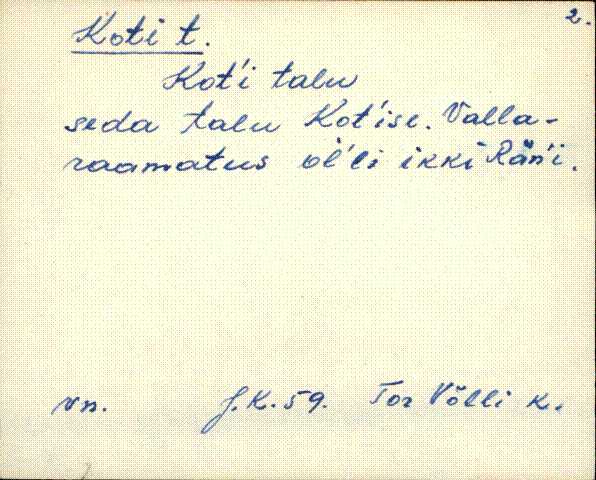 2.
Koti t.
Kot'i talu
seda talu Kot'ise. Valla-
raamatus ol'li ikki Rän'i.
vn. J.K. 59. Tor Võlli k.